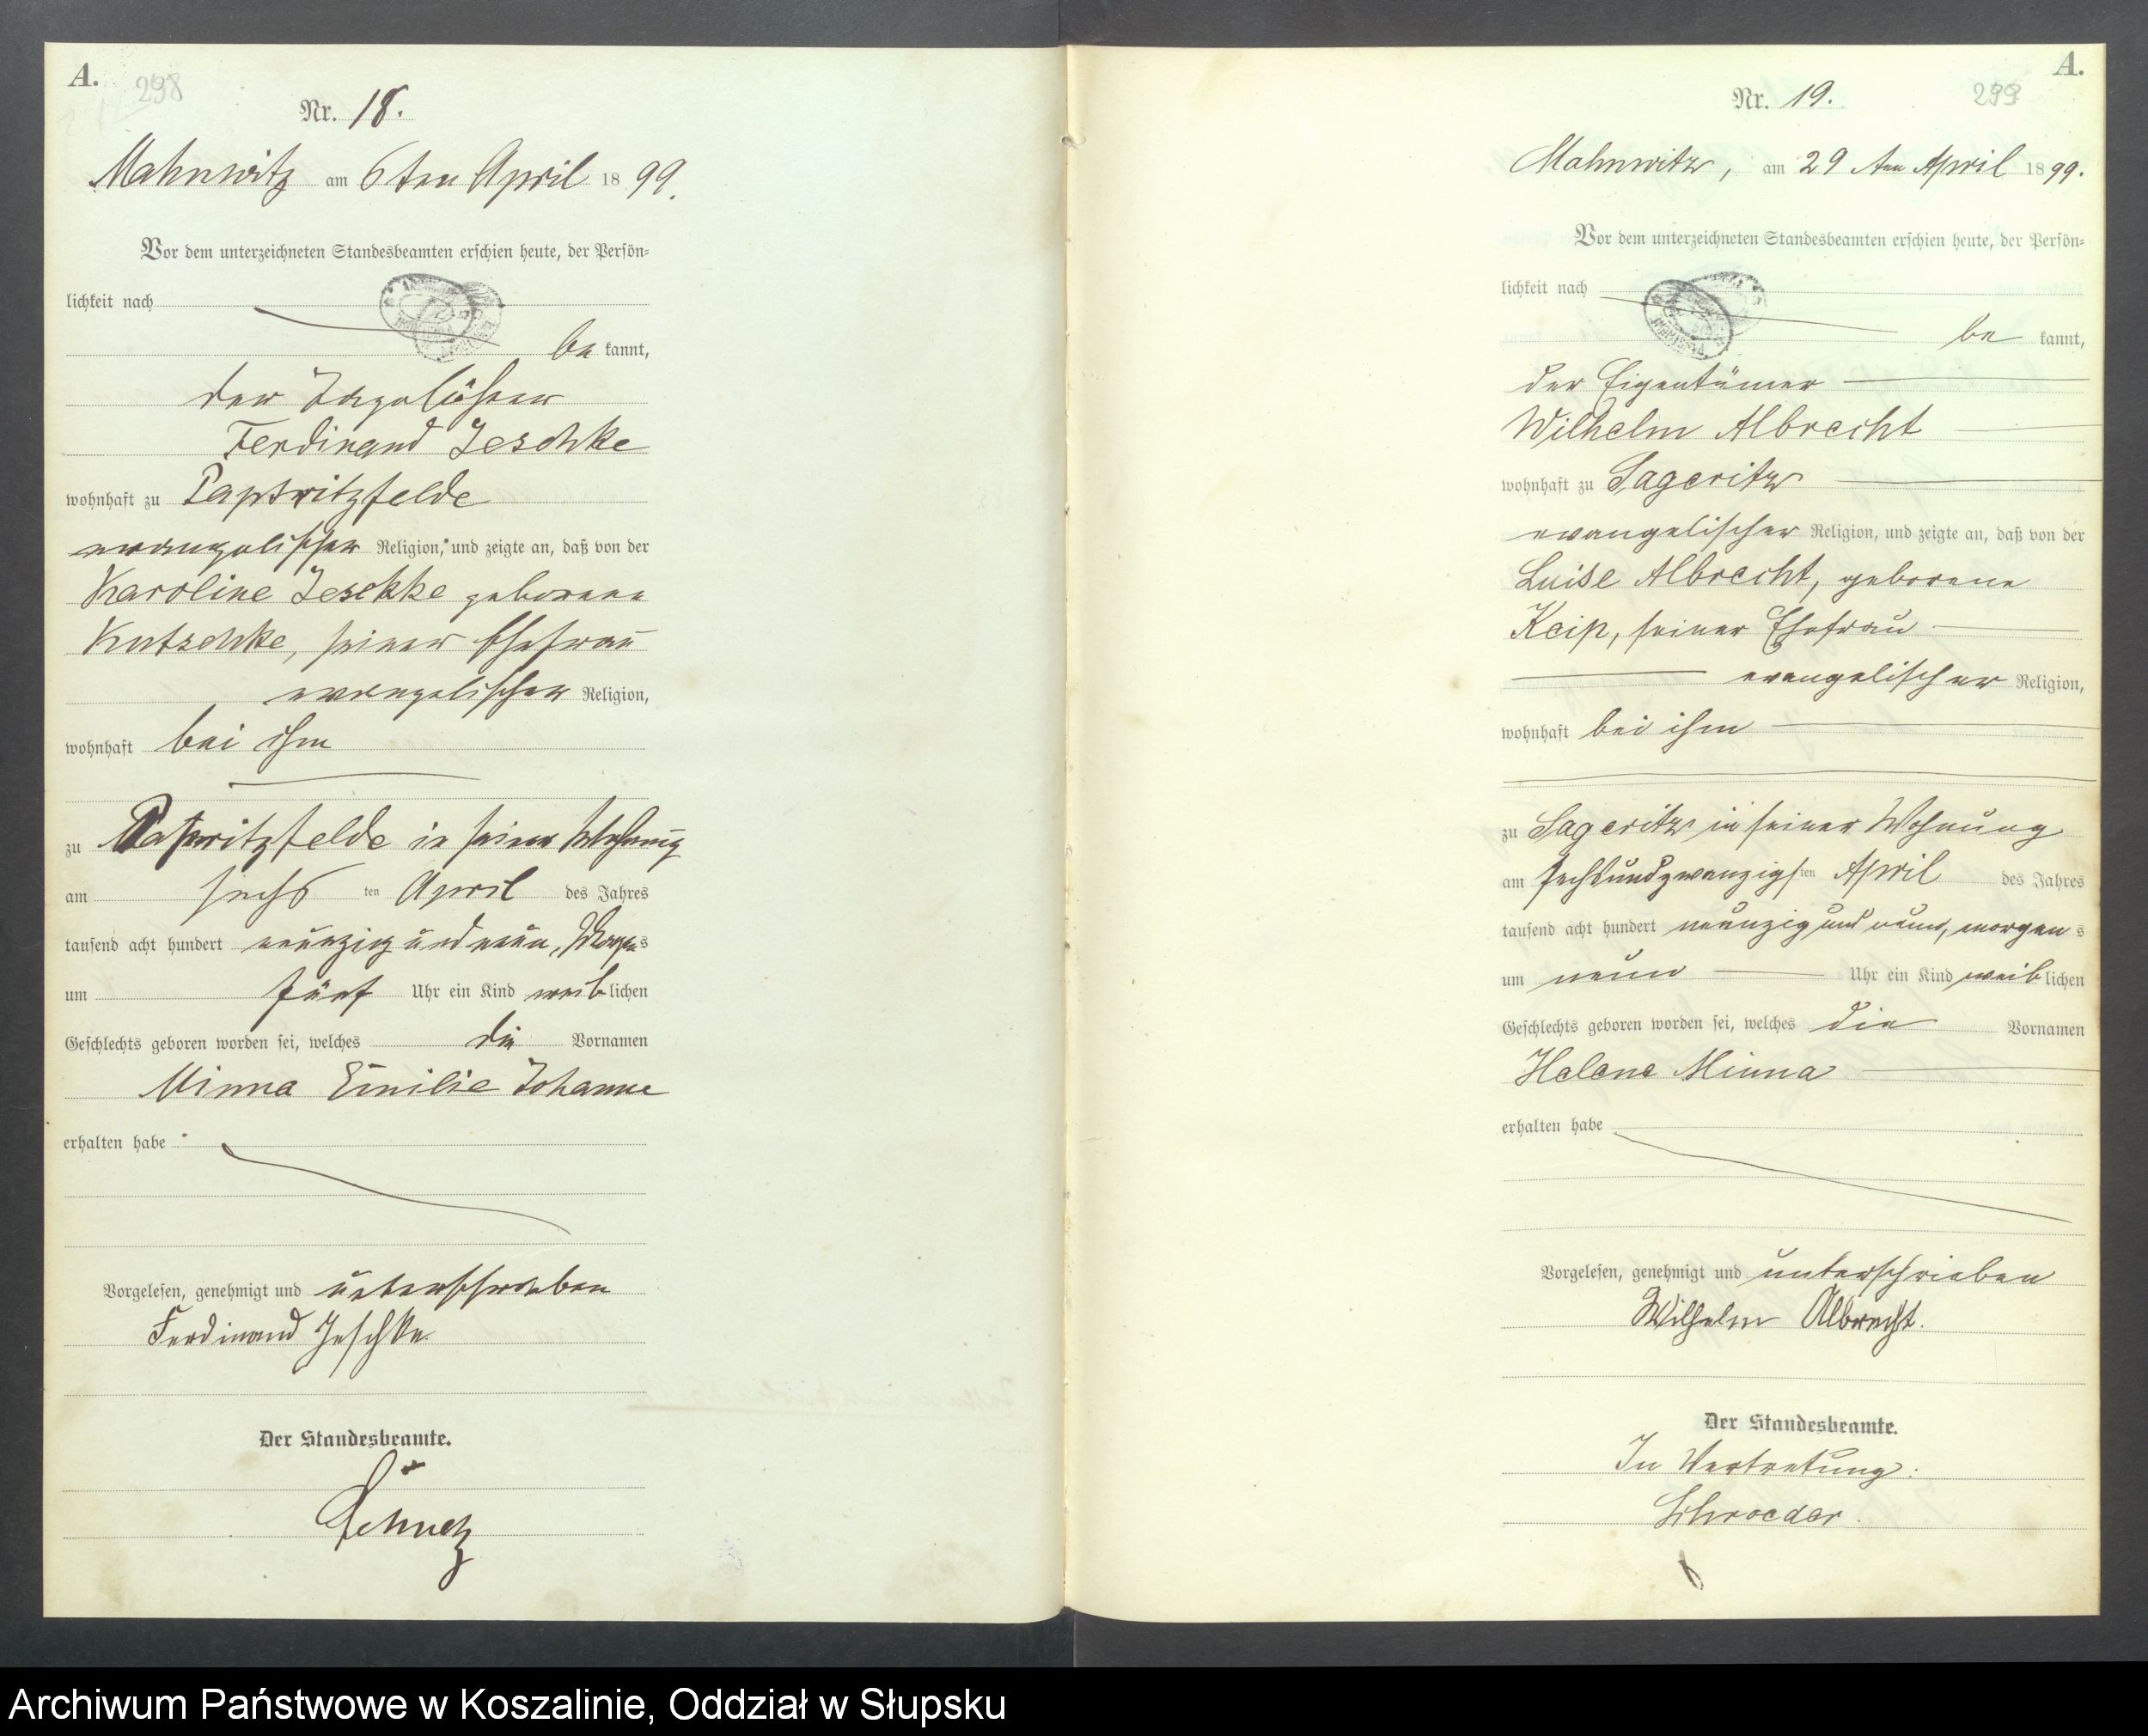 A.
298
Nr. 18.
Mahnwitz am 6ten April 1899.
Vor dem unterzeichneten Standesbeamten erschien heute, der Persön=
lichkeit nach
be kannt,
der
Ferdinand Jeschke
wohnhaft zu Papritzfelde
evangelischer Religion, und zeigte an, daß von der
Karoline Jeschke geborene
Kutschke, seiner Ehefrau
evangelischer Religion,
wohnhaft bei ihm
zu Papritzfelde in seiner Wohnung
am sechs ten April des Jahres
tausend acht hundert neunzig und neun, Morgens
um fünf Uhr ein Kind weiblichen
Geschlechts geboren worden sei, welches die Vornamen
Minna Emilie Johanne
erhalten habe
Vorgelesen, genehmigt und unterschrieben
Ferdinand Jeschke
Der Standesbeamte.
A.
299
Nr. 19.
Mahnwitz, am 29 ten April 1899.
Vor dem unterzeichneten Standesbeamten erschien heute, der Persön=
lichkeit nach
be kannt,
der Eigentümer
Wilhelm Albrecht
wohnhaft zu Sageritz
evangelischer Religion, und zeigte an, daß von der
Luise Albrecht, geborene
Keip, seiner Ehefrau
evangelischer Religion,
wohnhaft bei ihm
zu Sageritz in seiner Wohnung
am sechsundzwanzigsten April des Jahres
tausend acht hundert neunzig und neun, morgens
um neun Uhr ein Kind weiblichen
Geschlechts geboren worden sei, welches die Vornamen
Helene Minna
erhalten habe
Vorgelesen, genehmigt und unterschrieben
Wilhelm Albrecht.
Der Standesbeamte.
In Vertretung:
Schroeder.
Archiwum Państwowe w Koszalinie, Oddział w Słupsku